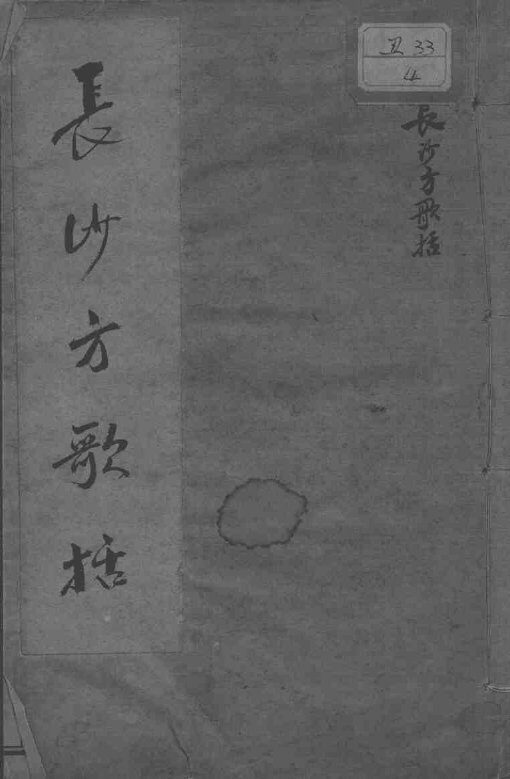 長沙方歌括
丑33
4
長沙方歌括